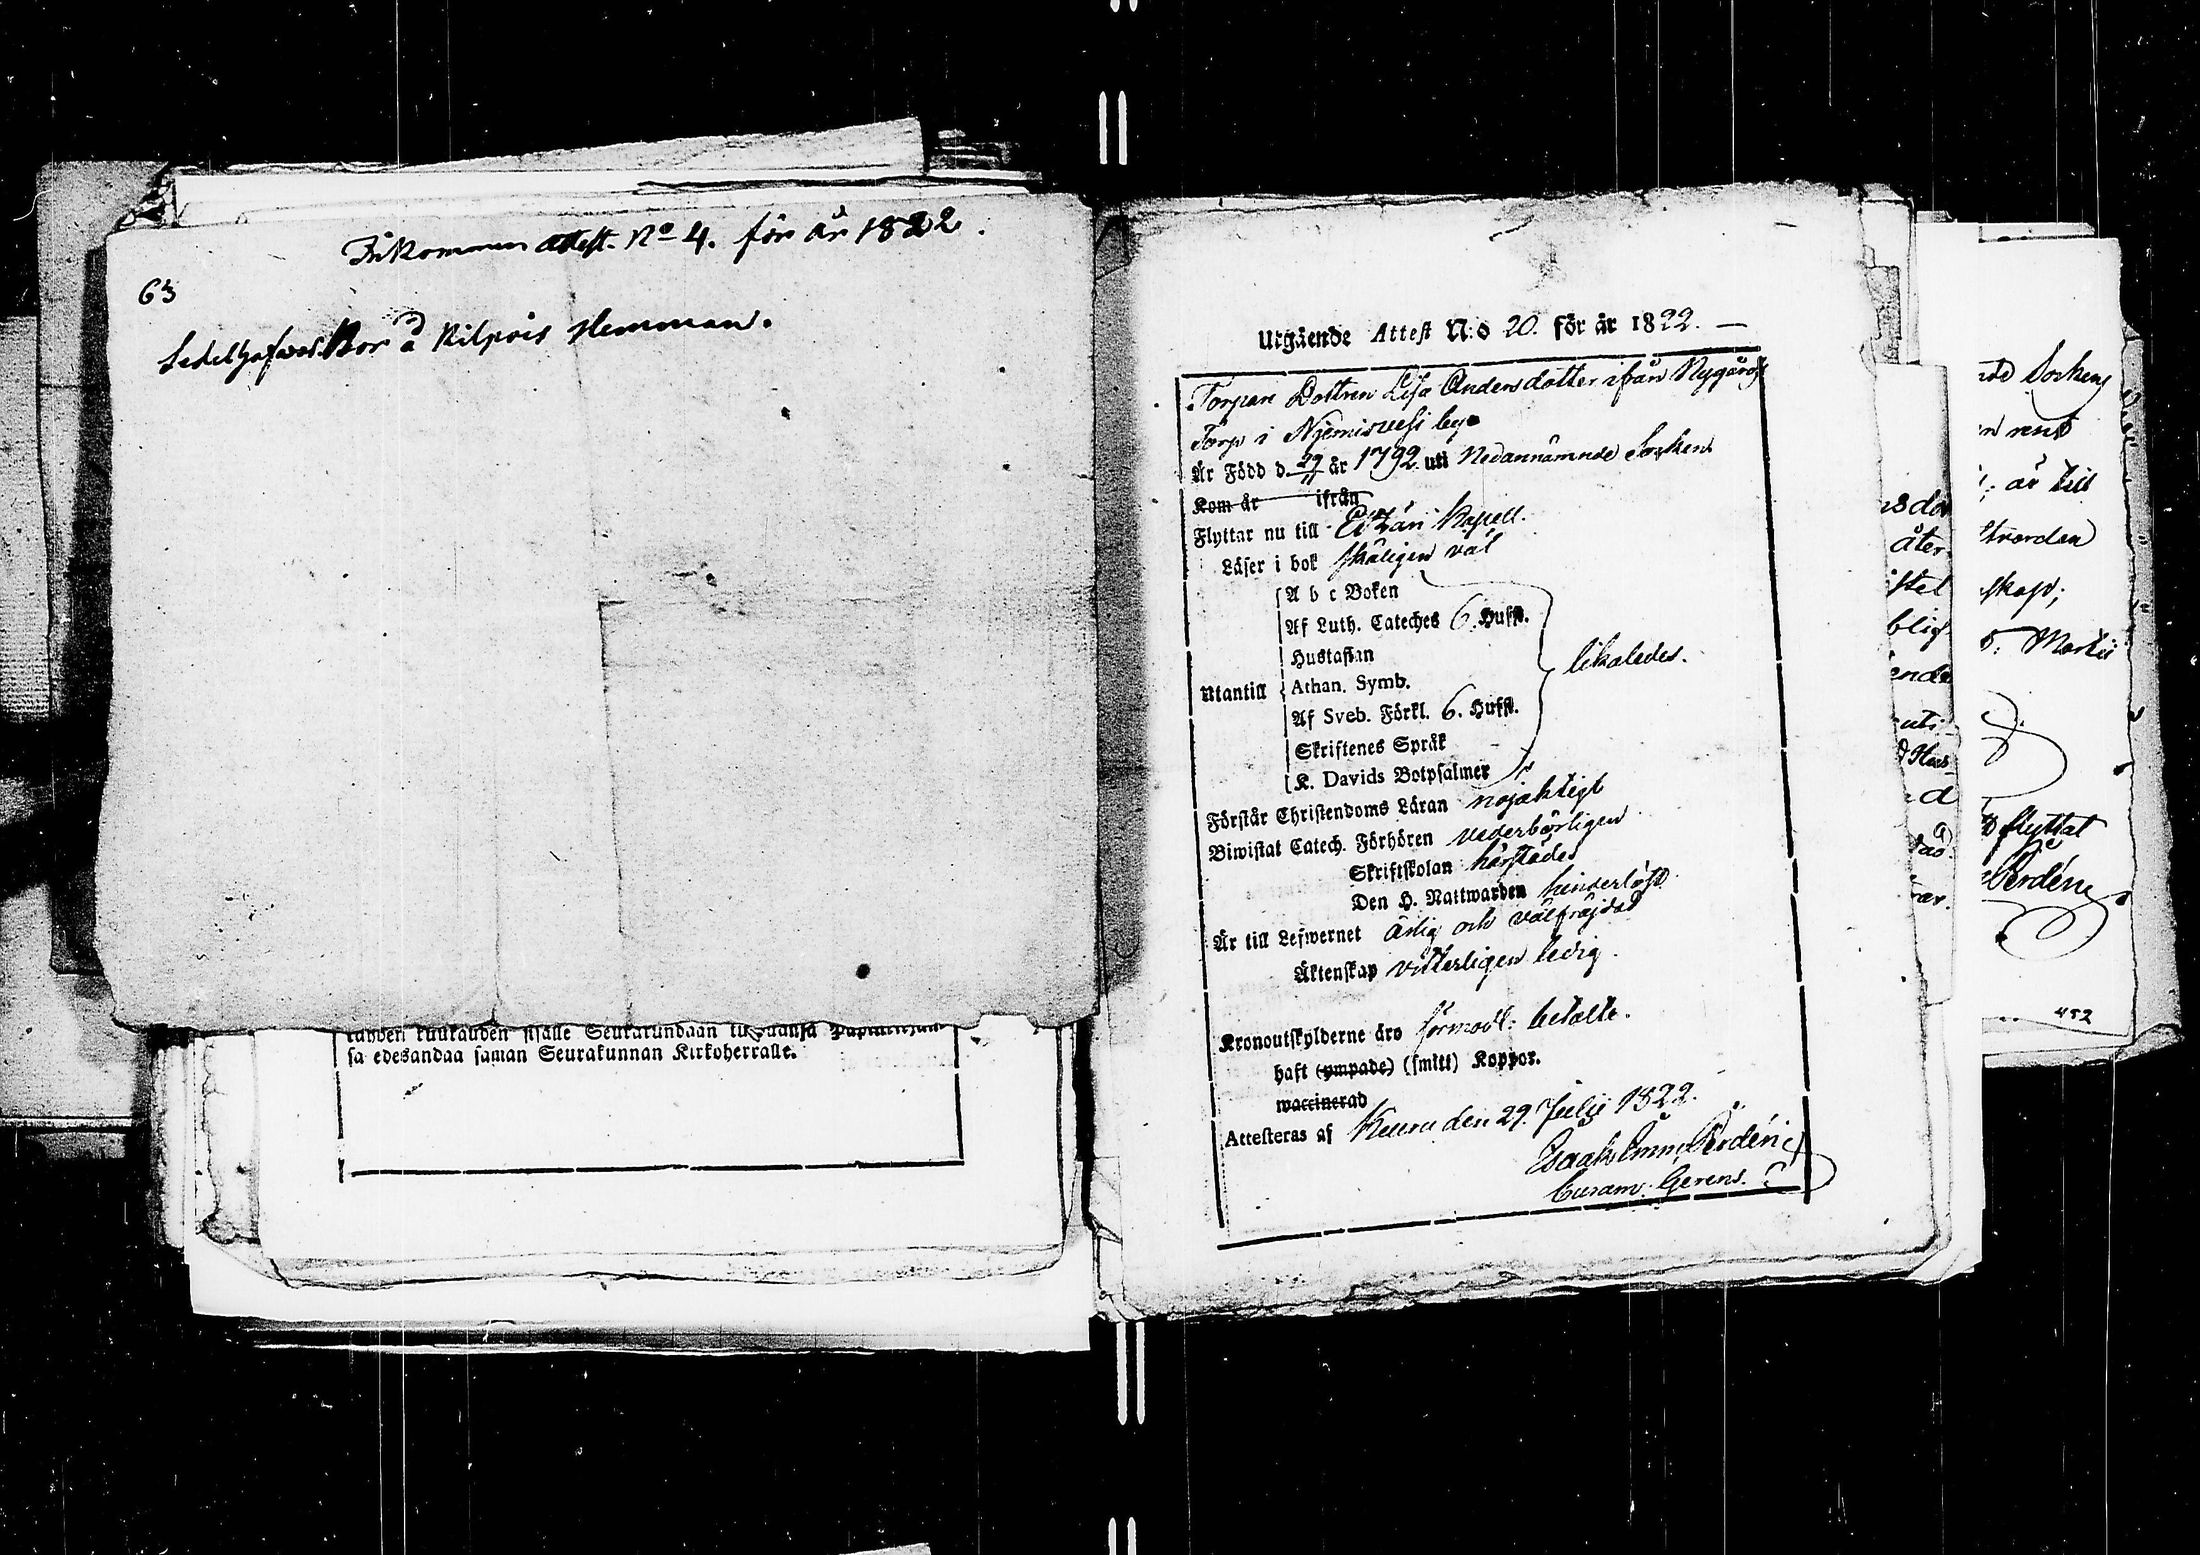 Inkommen attest. No 4. för år 1822.
63
Sedelhafwes. Bor å Kilpois Hemman.
kuukauden sisälle Seurakundaan
sa edesandaa saman Seurakunnan Kirkoherralle.
Utgående Attest N:o 20. för år 1822. —
Torpare Dottren Lisa Andersdotter ifrån Nygård
Torp i Niemisvesi by
Är Född d. 29/11 år 1792. uti Nedannämnde Socken
Kom år ifrån
Flyttar nu till Etzäri Kapell.
Läser i bok skäligen väl
A b c Boken
Af Luth. Cateches 6. Hufst.
Hustaflan
Utantill Athan. Symb. likaledes.
Af Sveb. Förkl. 6. Hufst.
Skriftenes Språk
K. Davids Botpsalmer
Förstår Christendoms Läran nöjaktigt
Biwistat Catech. Förhören vederbörligen
Skriftskolan härstädes
Den H. Nattwarden hinderlöst
Är till Lefwernet ärlig och välfräjdad
Äktenskap vitterligen ledig.
Kronoutskylderne äro förmodl: betalte.
haft (ympade) (smitt) Koppor.
waccinerad
Attesteras af Keuru den 29. Julii 1822.
Isaak Emn. Perdén
Curam. Gerens.
Sockens
år till
skap;
flyttat
Perdén
452